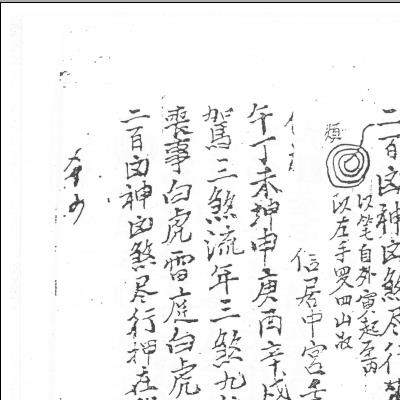 二百凶神凶煞尽行
以笔自外寅起至丙
以左手罗四山收
信居中宫
午丁未坤申庚酉辛戌
駕三煞流年三煞九
喪事白虎雷庭白虎
二百凶神凶煞尽行押在